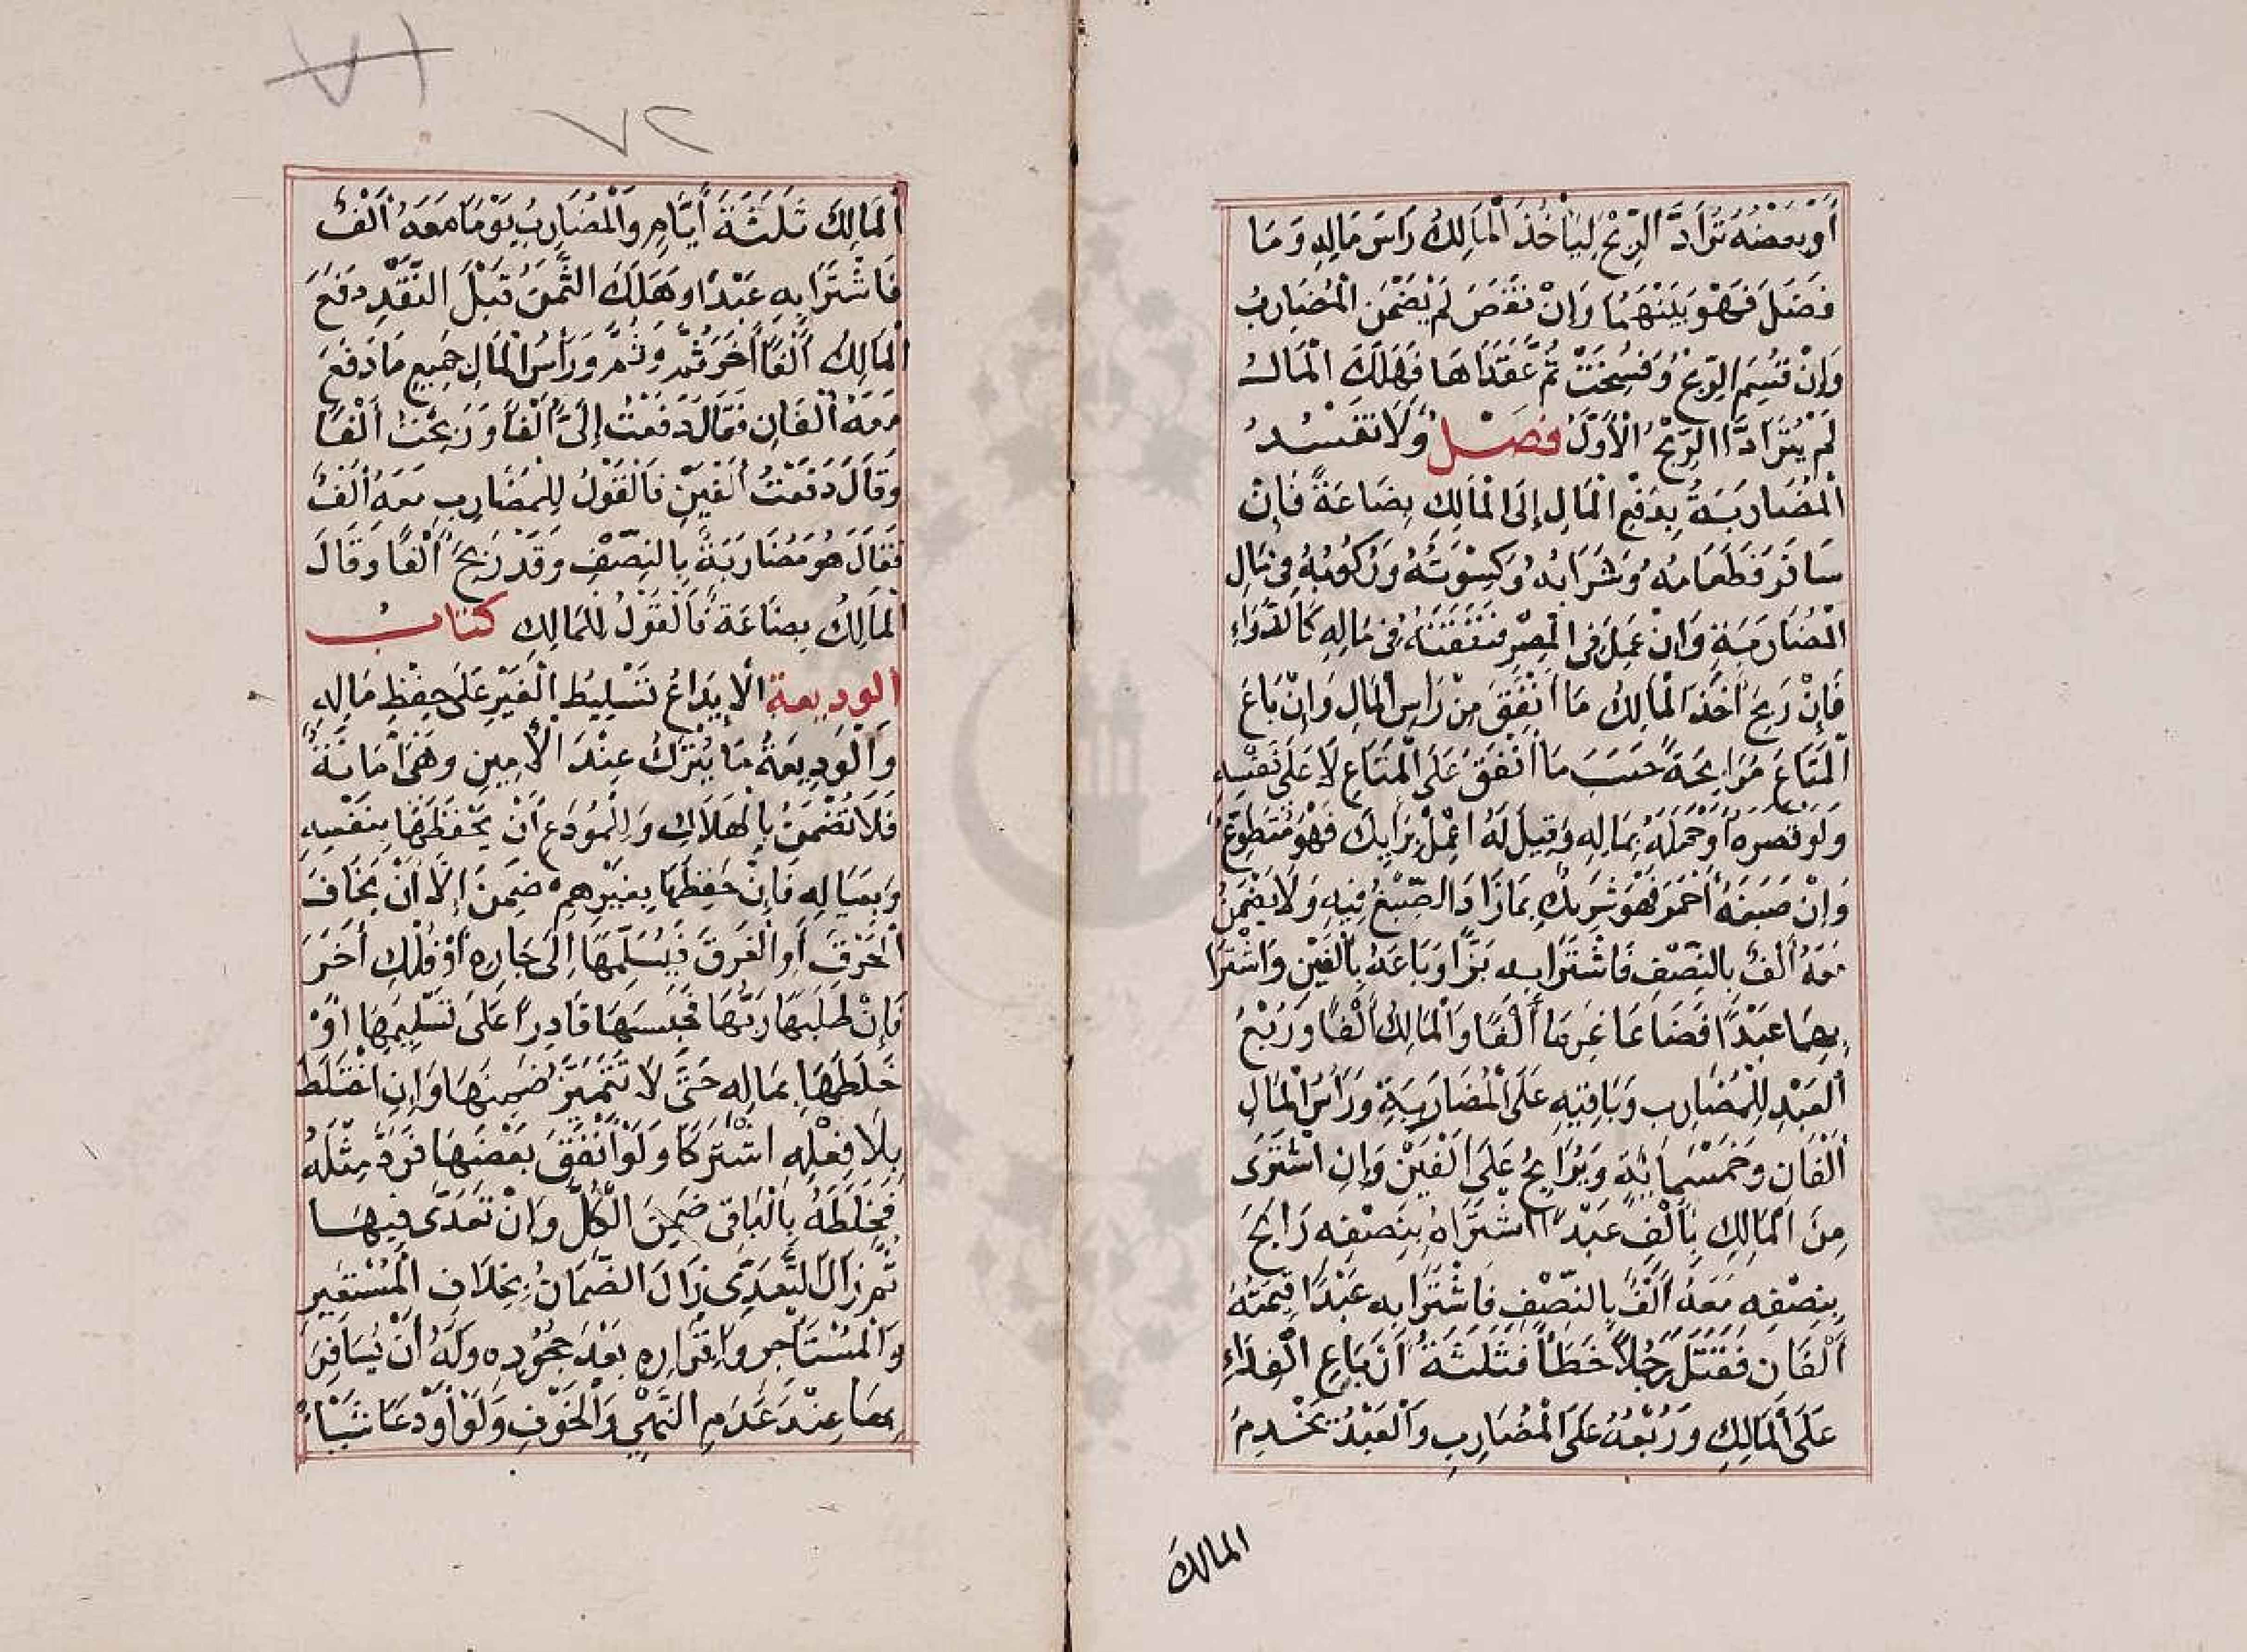 أَوْ بَعْضُهُ تَرَادَّ الرِّبْحَ لِيَأْخُذَ الْمَالِكُ رَأْسَ مَالِهِ وَمَا
فَضَلَ فَهُوَ بَيْنَهُمَا وَإِنْ نَقَصَ لَمْ يَضْمَنِ الْمُضَارِبُ
وَإِنْ قُسِمَ الرِّبْحُ وَفُسِخَتْ ثُمَّ عَقَدَاهَا فَهَلَكَ الْمَالُ
لَمْ يَتَرَادَّا الرِّبْحَ الْأَوَّلَ فصل وَلَا تَفْسُدُ
الْمُضَارَبَةُ بِدَفْعِ الْمَالِ إِلَى الْمَالِكِ بِضَاعَةً فَإِنْ
سَافَرَ فَطَعَامُهُ وَشَرَابُهُ وَكِسْوَتُهُ وَرُكُوبُهُ فِي مَالِ
الْمُضَارَبَةِ وَإِنْ عَمِلَ فِي الْمِصْرِ فَنَفَقَتُهُ فِي مَالِهِ كَالدَّوَاءِ
فَإِنْ رَبِحَ أَخَذَ الْمَالِكُ مَا أَنْفَقَ مِنْ رَأْسِ الْمَالِ وَإِنْ بَاعَ
الْمَتَاعَ مُرَابَحَةً حَسَبَ مَا أَنْفَقَ عَلَى الْمَتَاعِ لَا عَلَى نَفْسِهِ
وَلَوْ قَصَرَهُ أَوْ حَمَلَهُ بِمَالِهِ وَقِيلَ لَهُ اعْمَلْ بِرَأْيِكَ فَهُوَ مُتَطَوِّعٌ
وَإِنْ صَبَغَهُ أَحْمَرَ فَهُوَ شَرِيكٌ بِمَا زَادَ الصِّبْغُ فِيهِ وَلَا يَضْمَنُ
مَعَهُ أَلْفٌ بِالنِّصْفِ فَاشْتَرَا بِهِ بَزًّا وَبَاعَهُ بِأَلْفَيْنِ وَاشْتَرَا
بِهِمَا عَبْدًا فَضَاعَا غَرِمَا أَلْفًا وَالْمَالِكُ أَلْفًا وَرُبْعُ
الْعَبْدِ لِلْمُضَارِبِ وَبَاقِيهِ عَلَى الْمُضَارَبَةِ وَرَأْسُ الْمَالِ
أَلْفَانِ وَخَمْسُمِائَةٍ وَيُرَابِحُ عَلَى أَلْفَيْنِ وَإِنِ اشْتَرَى
مِنَ الْمَالِكِ بِأَلْفٍ عَبْدًا اشْتَرَاهُ بِنِصْفِهِ رَابَحَ
بِنِصْفِهِ مَعَهُ أَلْفٌ بِالنِّصْفِ فَاشْتَرَا بِهِ عَبْدًا قِيمَتُهُ
أَلْفَانِ فَقَتَلَ رَجُلًا خَطَأً فَثَلَثَةُ أَرْبَاعِ الْفِدَاءِ
عَلَى الْمَالِكِ وَرُبْعُهُ عَلَى الْمُضَارِبِ وَالْعَبْدُ يَخْدِمُ
المالك
٧٢
الْمَالِكَ ثَلَثَةَ أَيَّامٍ وَالْمُضَارِبُ يَوْمًا مَعَهُ أَلْفٌ
فَاشْتَرَا بِهِ عَبْدًا وَهَلَكَ الثَّمَنُ قَبْلَ النَّقْدِ دَفَعَ
الْمَالِكُ أَلْفًا أَخَرَ ثُمَّ وَثُمَّ وَرَأْسُ الْمَالِ جَمِيعُ مَا دَفَعَ
مَعَهُ أَلْفَانِ فَقَالَ دَفَعْتَ إِلَيَّ أَلْفًا وَرَبِحْتُ أَلْفًا
وَقَالَ دَفَعْتُ أَلْفَيْنِ فَالْقَوْلُ لِلْمُضَارِبِ مَعَهُ أَلْفٌ
فَقَالَ هُوَ مُضَارَبَةٌ بِالنِّصْفِ وَقَدْ رَبِحَ أَلْفًا وَقَالَ
الْمَالِكُ بِضَاعَةٌ فَالْقَوْلُ لِلْمَالِكِ كتاب
الوديعة الْإِيدَاعُ تَسْلِيطُ الْغَيْرِ عَلَى حِفْظِ مَالِهِ
وَالْوَدِيعَةُ مَا يُتْرَكُ عِنْدَ الْأَمِينِ وَهِيَ أَمَانَةٌ
فَلَا تُضْمَنُ بِالْهَلَاكِ وَلِلْمُودَعِ أَنْ يَحْفَظَهَا بِنَفْسِهِ
وَبِعَيَالِهِ فَإِنْ حَفِظَهَا بِغَيْرِهِمْ ضَمِنَ إِلَّا أَنْ يَخَافَ
الْحَرْقَ أَوِ الْغَرَقَ فَيُسَلِّمَهَا إِلَى جَارِهِ أَوْ فُلْكٍ أَخَرَ
فَإِنْ طَلَبَهَا رَبُّهَا فَحَبَسَهَا قَادِرًا عَلَى تَسْلِيمِهَا أَوْ
خَلَطَهَا بِمَالِهِ حَتَّى لَا تَتَمَيَّزَ ضَمِنَهَا وَإِنِ اخْتَلَطَ
بِلَا فِعْلِهِ اشْتَرَكَا وَلَوْ أَنْفَقَ بَعْضَهَا فَرَدَّ مِثْلَهُ
فَخَلَطَهُ بِالْبَاقِي ضَمِنَ الْكُلَّ وَإِنْ تَعَدَّى فِيهَا
ثُمَّ زَالَ التَّعَدِّي زَالَ الضَّمَانُ بِخِلَافِ الْمُسْتَعِيرِ
وَالْمُسْتَأْجِرِ وَإِقْرَارِهِ بَعْدَ جُحُودِهِ وَلَهُ أَنْ يُسَافِرَ
بِهَا عِنْدَ عَدَمِ النَّهْيِ وَالْخَوْفِ وَلَوْ أَوْدَعَا شَيْئًا